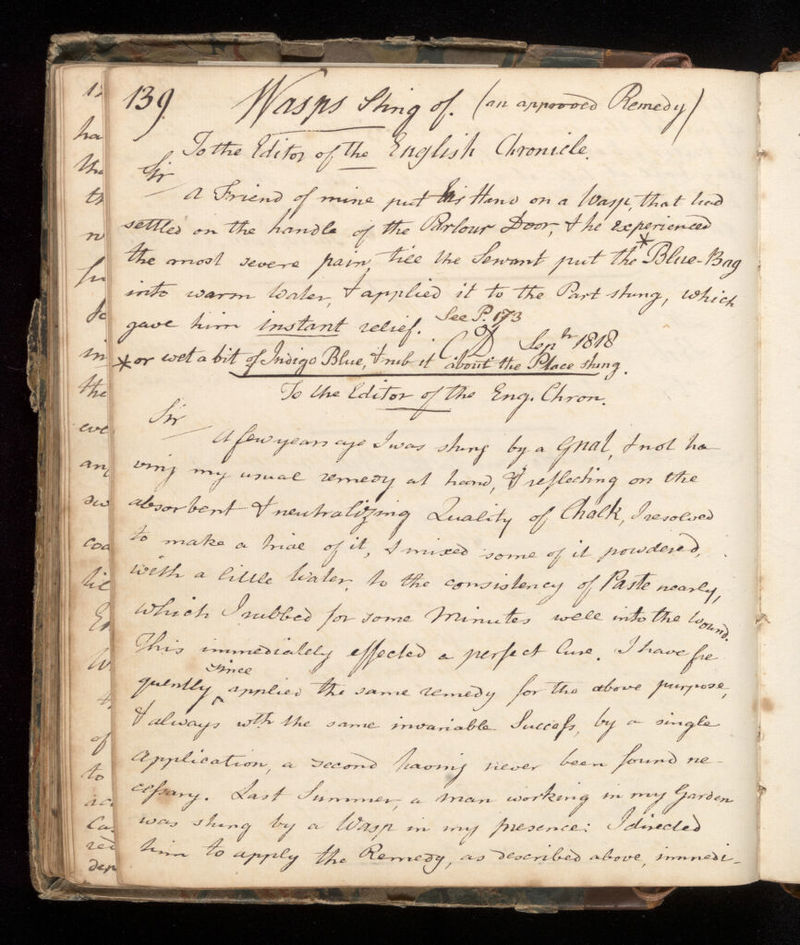 139. Wasps Sting of. (an approved Remedy)
To the Editor of the English Chronicle.
Sir
A Friend of mine put his Hand on a Wasp, that had
settled on the handle of the Parlour Door, & he experienced
the most severe pain, till the Servant put the *Blue-Bag
into warm Water, & applied it to the Part stung, which
gave him instant relief. See P. 173
C D Sepr 1818
*or wet a bit of Indigo Blue, & rub it about the Place stung.
To the Editor of the Eng. Chron.
Sir
A few years ago I was stung by a Gnat, & not ha
ving my usual remedy at hand, & reflecting on the
absorbent & neutralizing Quality of Chalk, I resolved
to make a trial of it, I mixed some of it powdered,
with a little Water, to the consistency of Paste nearly,
which I rubbed for some Minutes well into the Wound.
This immediately effected a perfect Cure. I have fre
quently since applied the same remedy for the above purpose,
& always wth the same invariable Success, by a single
Application, a second having never been found ne-
cessary. Last Summer, a Man working in my Garden
was stung by a Wasp in my presence: I directed
him to apply the Remedy, as described above, immedi-